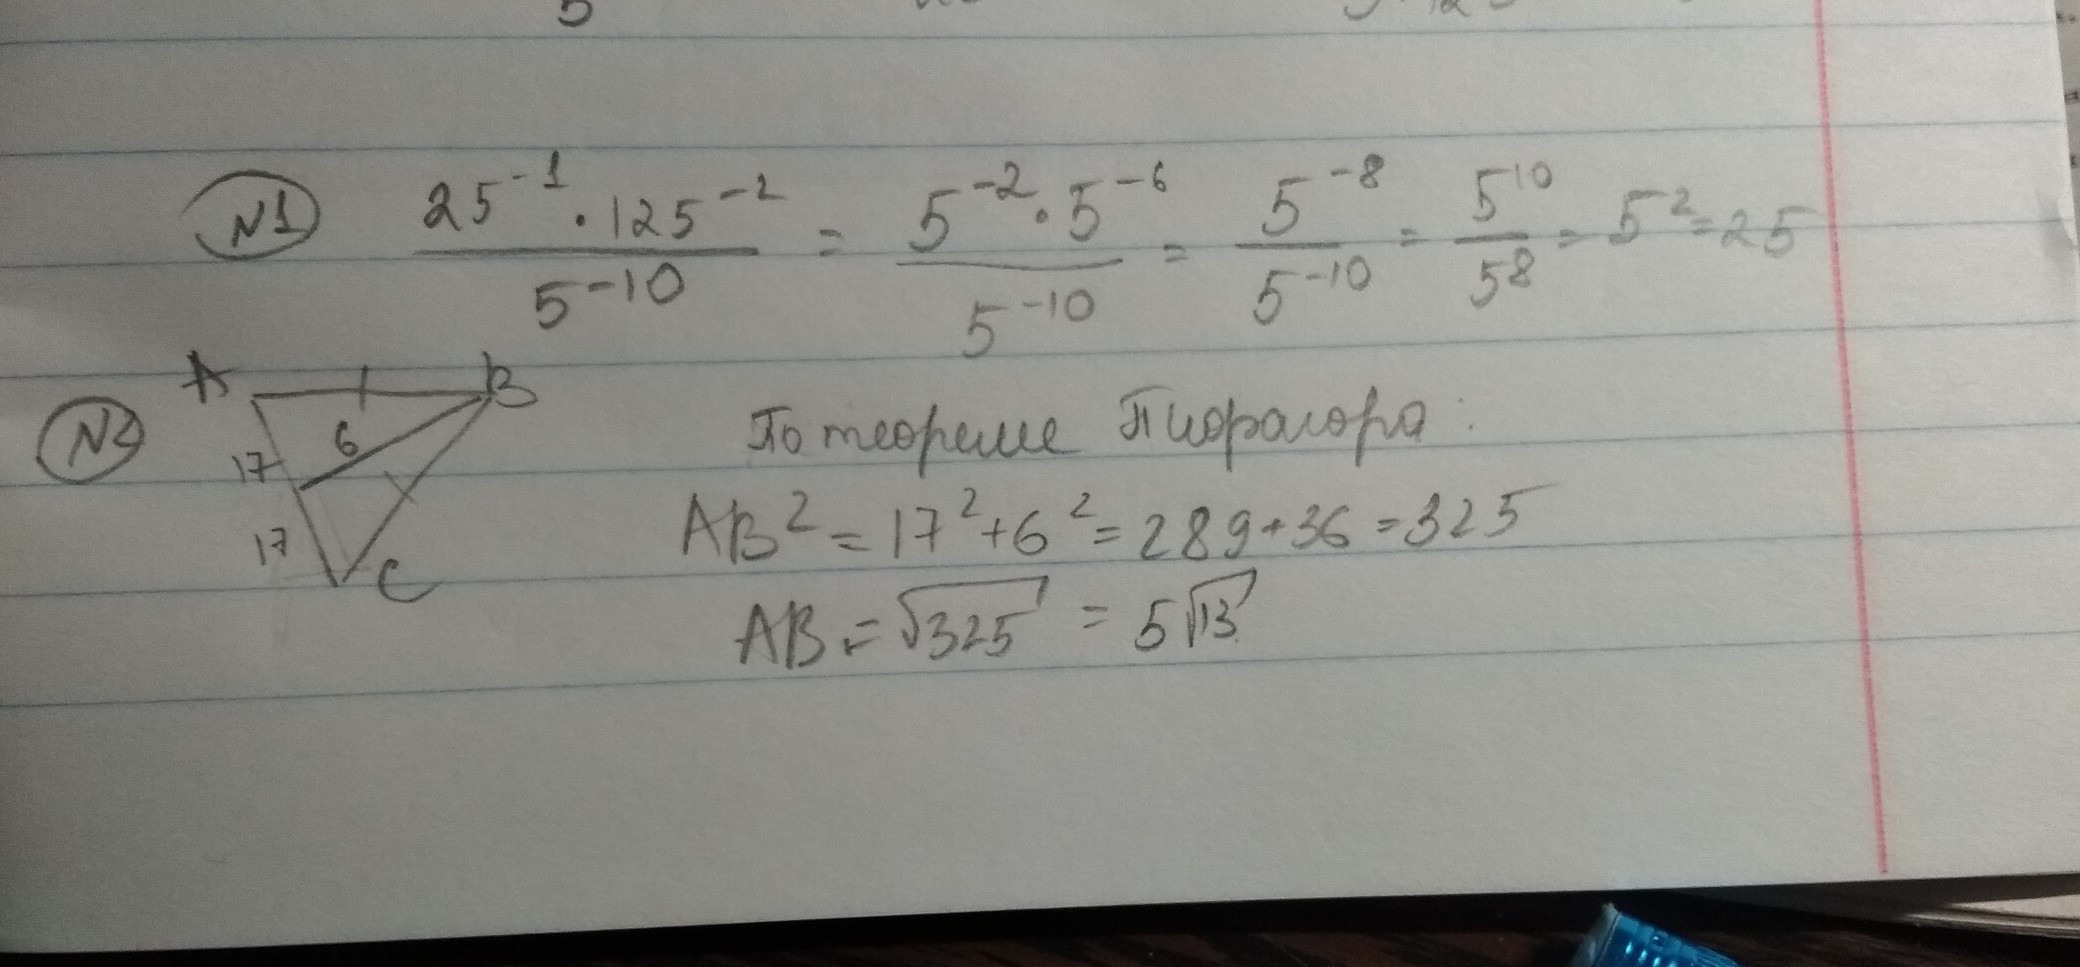 5
N1 25^-1 · 125^-2 / 5^-10 = 5^-2 · 5^-6 / 5^-10 = 5^-8 / 5^-10 = 5^10 / 5^8 = 5^2 = 25
N2 A B 6 17 17 C
По теореме Пифагора:
AB^2 = 17^2 + 6^2 = 289 + 36 = 325
AB = √325 = 5√13